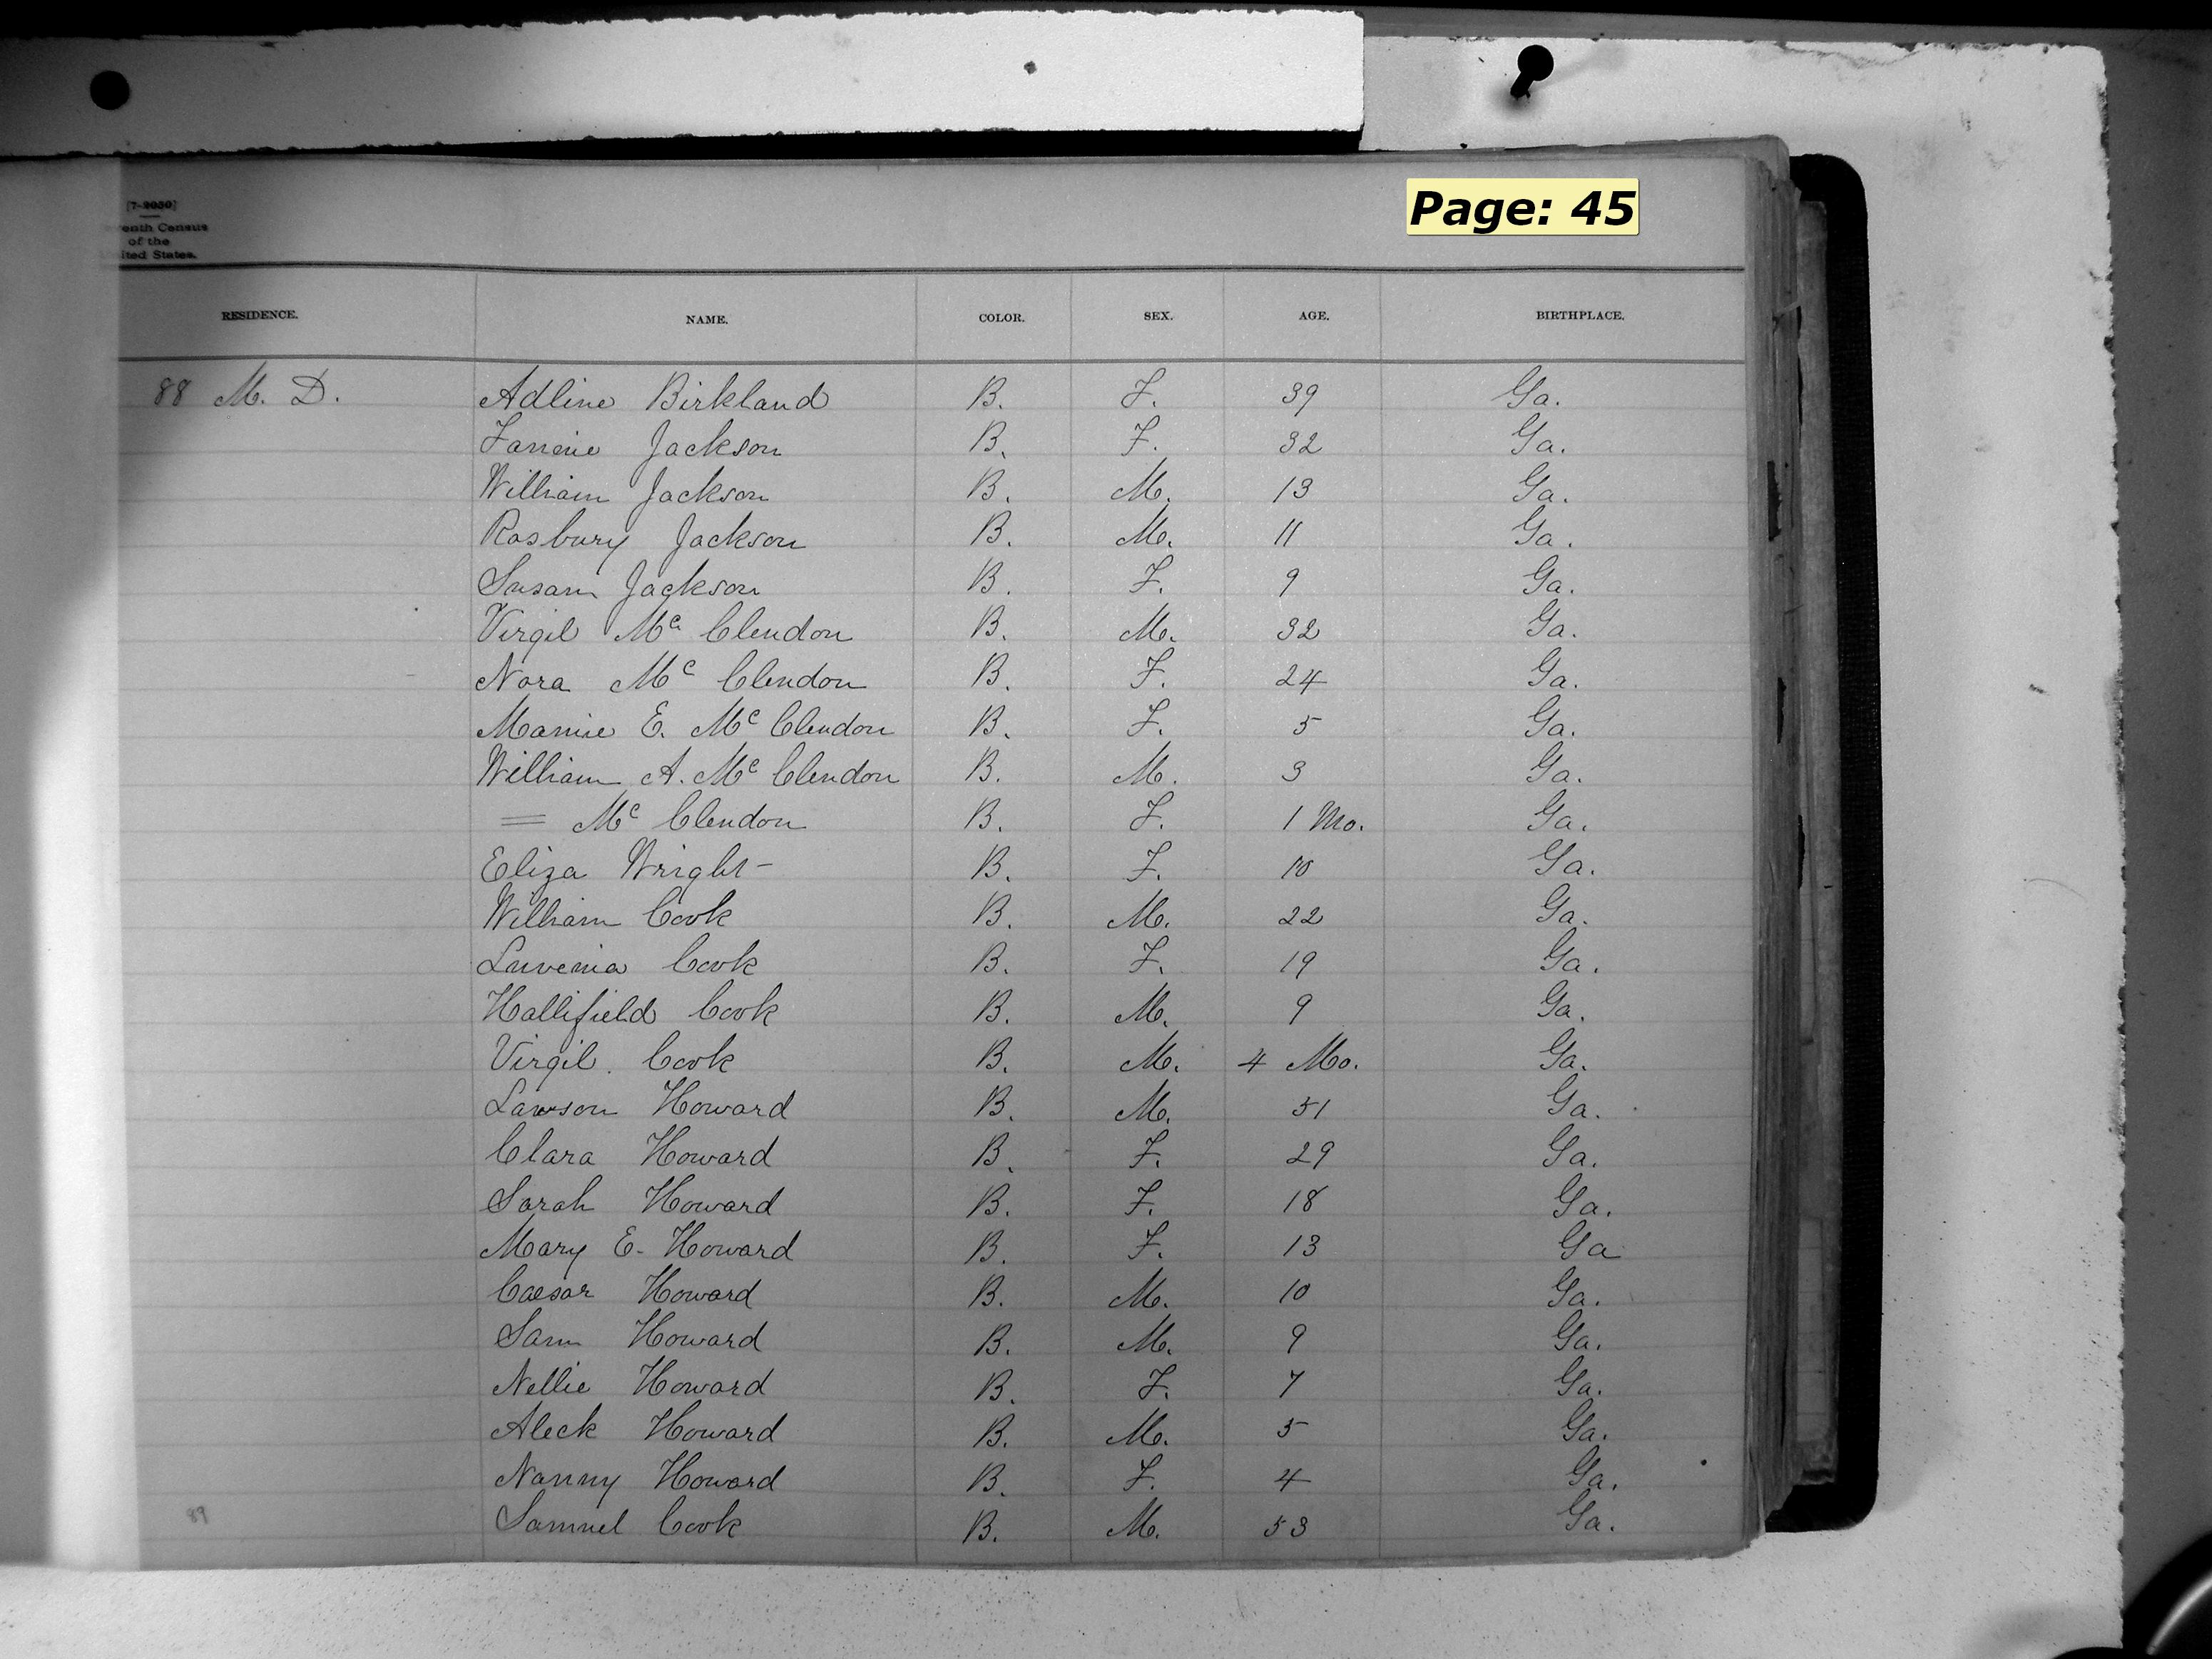 Page: 45
[7-2050]
venth Census
of the
ited States.
RESIDENCE. NAME. COLOR. SEX. AGE. BIRTHPLACE.
88 M. D. Adline Birkland B. F. 39 Ga.
Fannie Jackson B. F. 32 Ga.
William Jackson B. M. 13 Ga.
Rosbury Jackson B. M. 11 Ga.
Susan Jackson B. F. 9 Ga.
Virgil Mc Clendon B. M. 32 Ga.
Nora Mc Clendon B. F. 24 Ga.
Mamie E. Mc Clendon B. F. 5 Ga.
William A. Mc Clendon B. M. 3 Ga.
= Mc Clendon B. F. 1 Mo. Ga.
Eliza Wright B. F. 10 Ga.
William Cook B. M. 22 Ga.
Luvenia Cook B. F. 19 Ga.
Hallifield Cook B. M. 9 Ga.
Virgil. Cook B. M. 4 Mo. Ga.
Lawson Howard B. M. 51 Ga.
Clara Howard B. F. 29 Ga.
Sarah Howard B. F. 18 Ga.
Mary E. Howard B. F. 13 Ga
Caesar Howard B. M. 10 Ga.
Sam Howard B. M. 9 Ga.
Nellie Howard B. F. 7 Ga.
Aleck Howard B. M. 5 Ga.
Nanny Howard B. F. 4 Ga.
89 Samuel Cook B. M. 53 Ga.